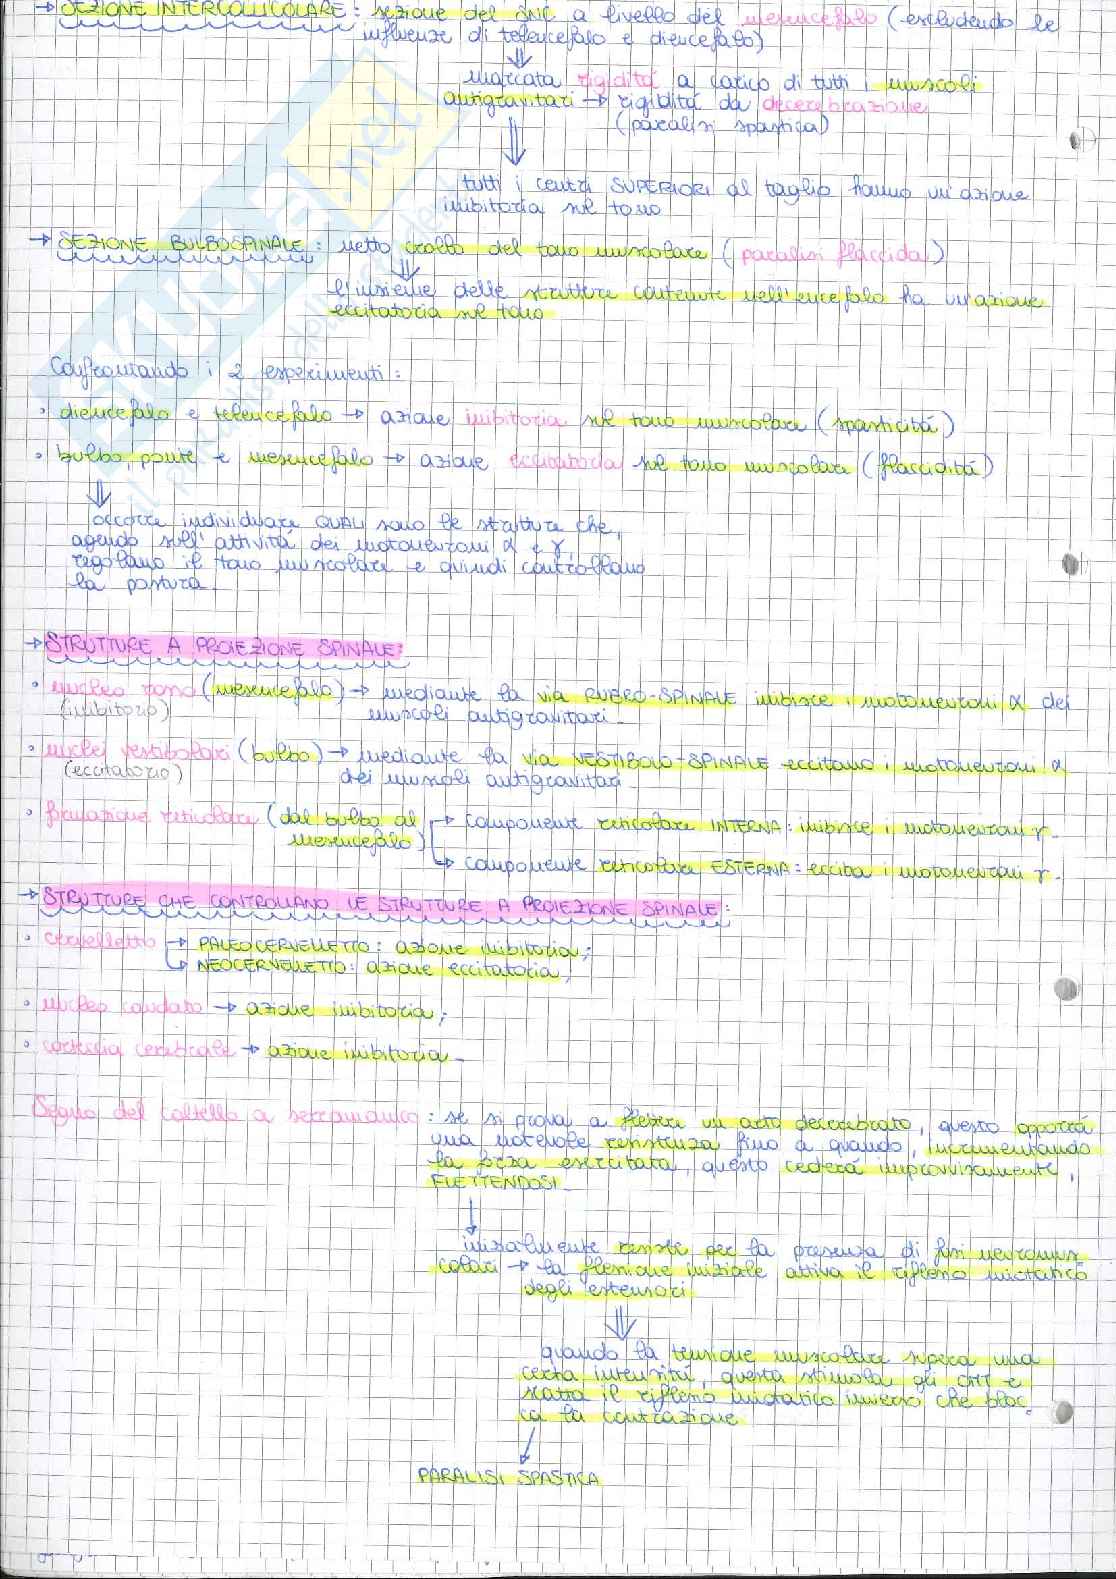 → SEZIONE INTERCOLLICOLARE: sezione del SNC a livello del mesencefalo (escludendo le
influenze di telencefalo e diencefalo)
marcata rigidità a carico di tutti i muscoli
antigravitari → rigidità da decerebrazione
(paralisi spastica)
tutti i centri SUPERIORI al taglio hanno un'azione
inibitoria sul tono
→ SEZIONE BULBOSPINALE: netto crollo del tono muscolare (paralisi flaccida)
l'insieme delle strutture contenute nell'encefalo ha un'azione
eccitatoria sul tono
Confrontando i 2 esperimenti:
• diencefalo e telencefalo → azione inibitoria sul tono muscolare (spasticità)
• bulbo, ponte e mesencefalo → azione eccitatoria sul tono muscolare (flaccidità)
occorre individuare QUALI sono le strutture che,
agendo sull'attività dei motoneuroni α e γ,
regolano il tono muscolare e quindi controllano
la postura.
→ STRUTTURE A PROIEZIONE SPINALE:
• nucleo rosso (mesencefalo) → mediante la via RUBRO-SPINALE inibisce i motoneuroni α dei
(inibitorio) muscoli antigravitari.
• nuclei vestibolari (bulbo) → mediante la via VESTIBOLO-SPINALE eccitano i motoneuroni α
(eccitatorio) dei muscoli antigravitari.
• formazione reticolare (dal bulbo al → componente reticolare INTERNA: inibisce i motoneuroni γ.
mesencefalo) → componente reticolare ESTERNA: eccita i motoneuroni γ.
→ STRUTTURE CHE CONTROLLANO LE STRUTTURE A PROIEZIONE SPINALE:
• cervelletto → PALEOCERVELLETTO: azione inibitoria;
→ NEOCERVELLETTO: azione eccitatoria;
• nucleo caudato → azione inibitoria;
• corteccia cerebrale → azione inibitoria.
Segno del coltello a serramanico: se si prova a flettere un arto decerebrato, questo opporrà
una notevole resistenza fino a quando, incrementando
la forza esercitata, questo cederà improvvisamente,
FLETTENDOSI.
inizialmente resiste per la presenza di fusi neuromus
colari → la flessione iniziale attiva il riflesso miotatico
degli estensori
quando la tensione muscolare supera una
certa intensità, questa stimola gli OTT e
scatta il riflesso miotatico inverso che bloc
ca la contrazione.
PARALISI SPASTICA